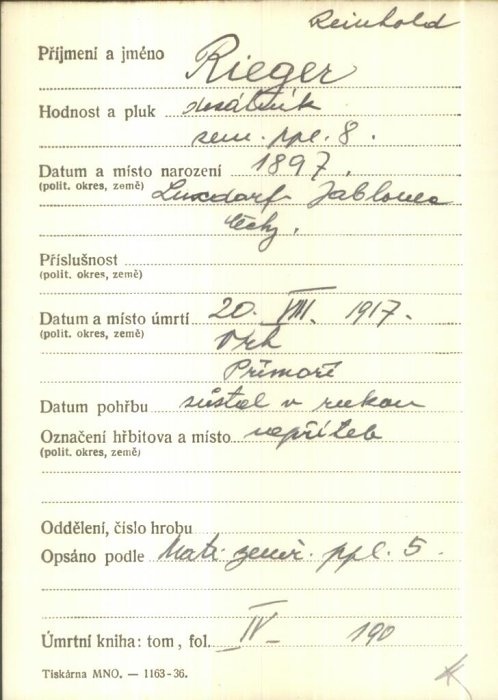 Reinhold
Příjmení a jméno Rieger
Hodnost a pluk desátník
zem. ppl. 8.
Datum a místo narození 1897.
(polit. okres, země) Luxdorf Jablonec
Čechy.
Příslušnost
(polit. okres, země)
Datum a místo úmrtí 20. VIII. 1917.
(polit. okres, země) Vrh
Přímoří
Datum pohřbu zůstal v rukou
Označení hřbitova a místo nepřítele
(polit. okres, země)
Oddělení, číslo hrobu
Opsáno podle Matr. zeměr. ppl. 5.
Úmrtní kniha: tom, fol. IV 190
Tiskárna MNO. — 1163-36.